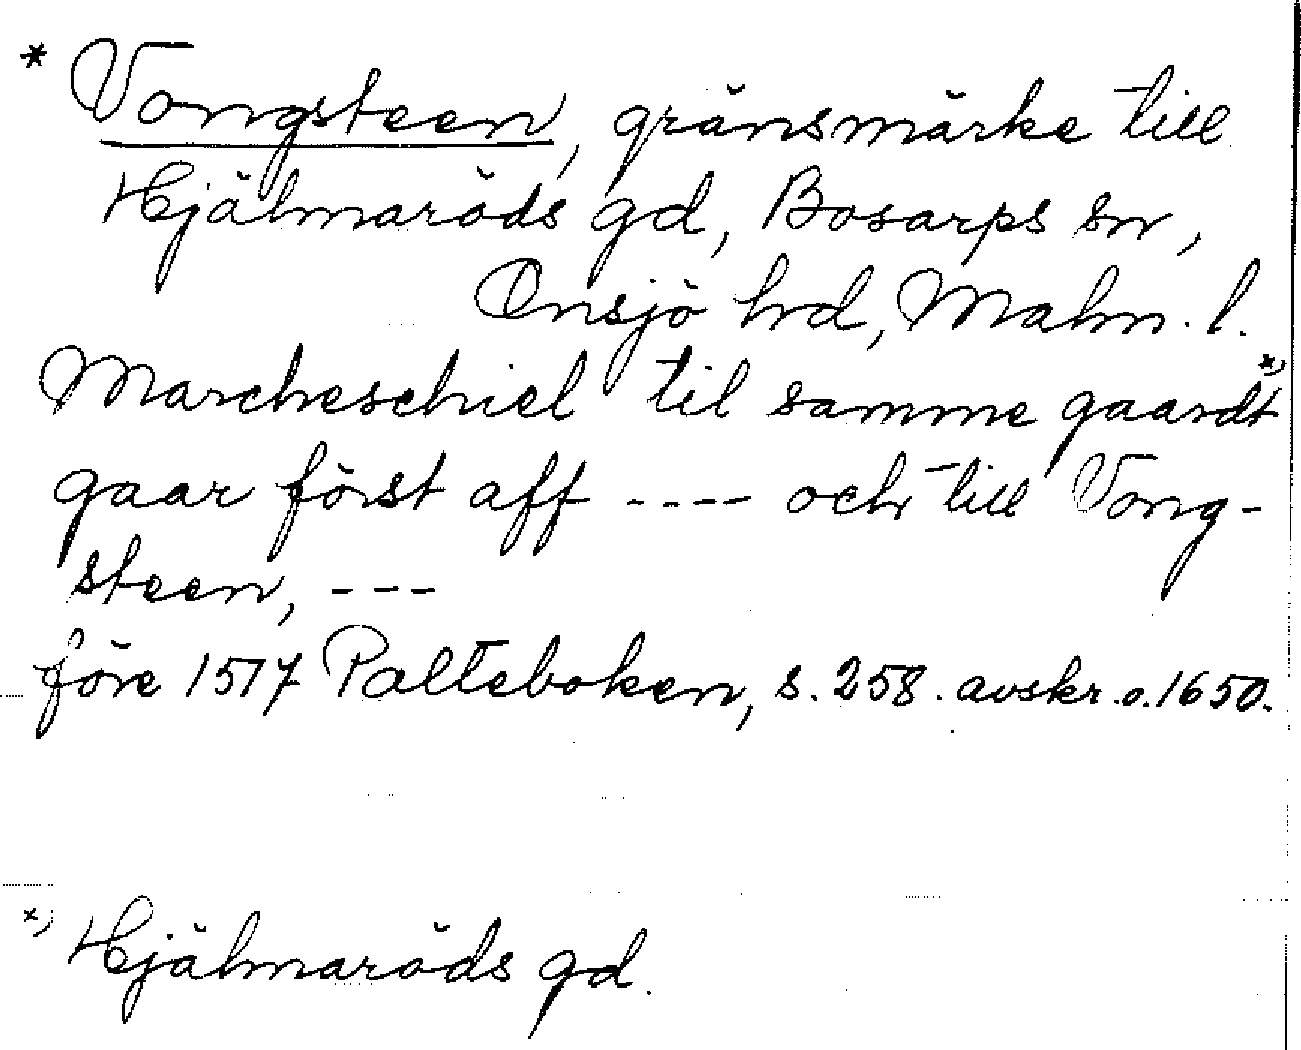 * Vongsteen, gränsmärke till
Hjälmaröds gd, Bosarps sn,
Onsjö hd, Malm. l.
Marcheschiel til samme gaardt x)
gaar först aff ---- och till Vong-
steen, ---
före 1517 Palteboken, s. 258. avskr. o. 1650.
x) Hjälmaröds gd.